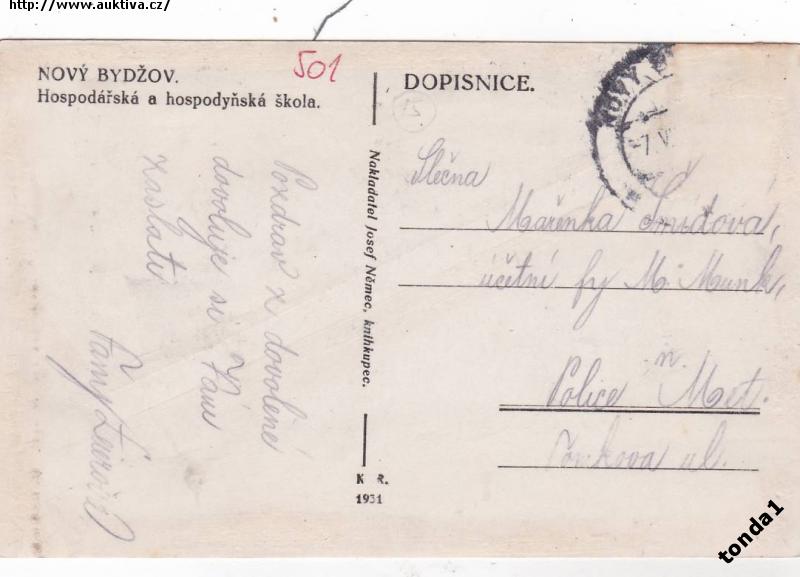 http://www.auktiva.cz/
NOVÝ BYDŽOV.
Hospodářská a hospodyňská škola.
501
Pozdrav z dovolené
dovoluje si Vám
zaslati
Fany
Nakladatel Josef Němec, knihkupec.
K. R.
1931
DOPISNICE.
NOVÝ B
7 V
Slečna
Mařenka Šmídová,
účetní fy M. Munk,
Police n. Met.
ul.
tonda1